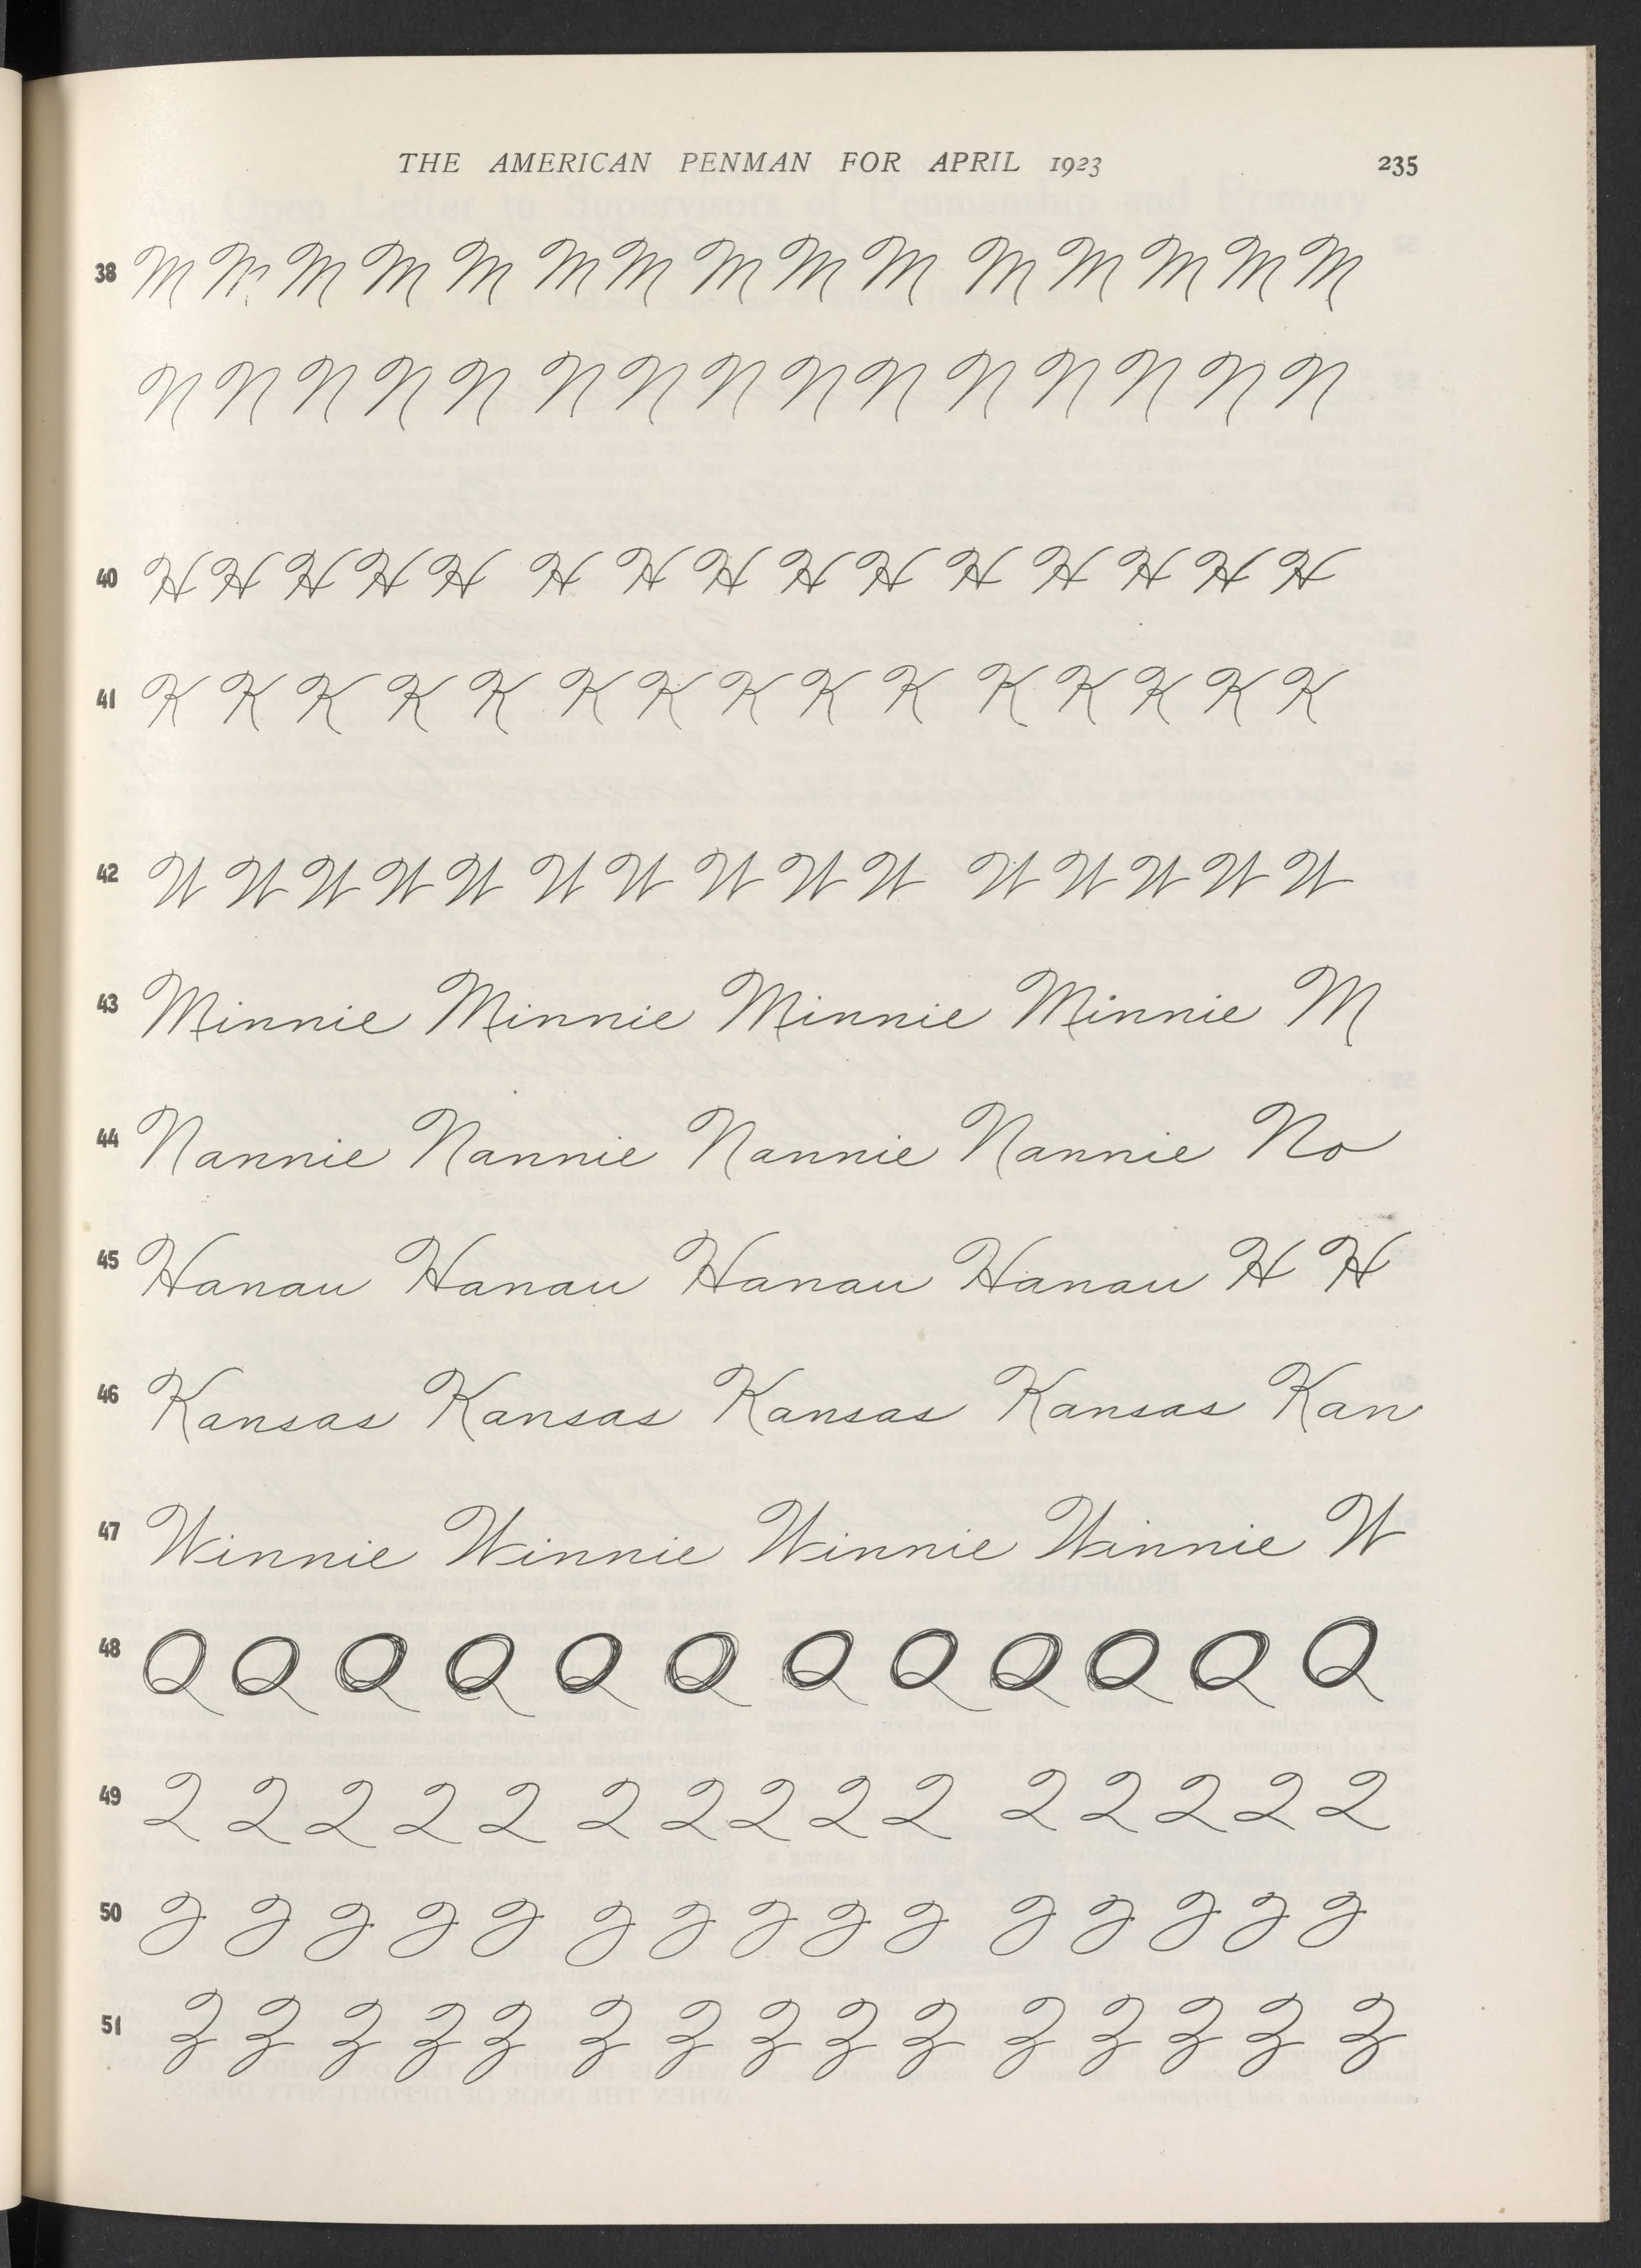 THE AMERICAN PENMAN FOR APRIL 1923 235
38 M M M M M M M M M M M M M M M
N N N N N N N N N N N N N N N
40 H H H H H H H H H H H H H H H
41 K K K K K K K K K K K K K K K
42 W W W W W W W W W W W W W W W
43 Minnie Minnie Minnie Minnie M
44 Nannie Nannie Nannie Nannie No
45 Hanau Hanau Hanau Hanau H H
46 Kansas Kansas Kansas Kansas Kan
47 Winnie Winnie Winnie Winnie W
48 Q Q Q Q Q Q Q Q Q Q Q Q
49 Q Q Q Q Q Q Q Q Q Q Q Q Q Q Q
50
51 Z Z Z Z Z Z Z Z Z Z Z Z Z Z Z